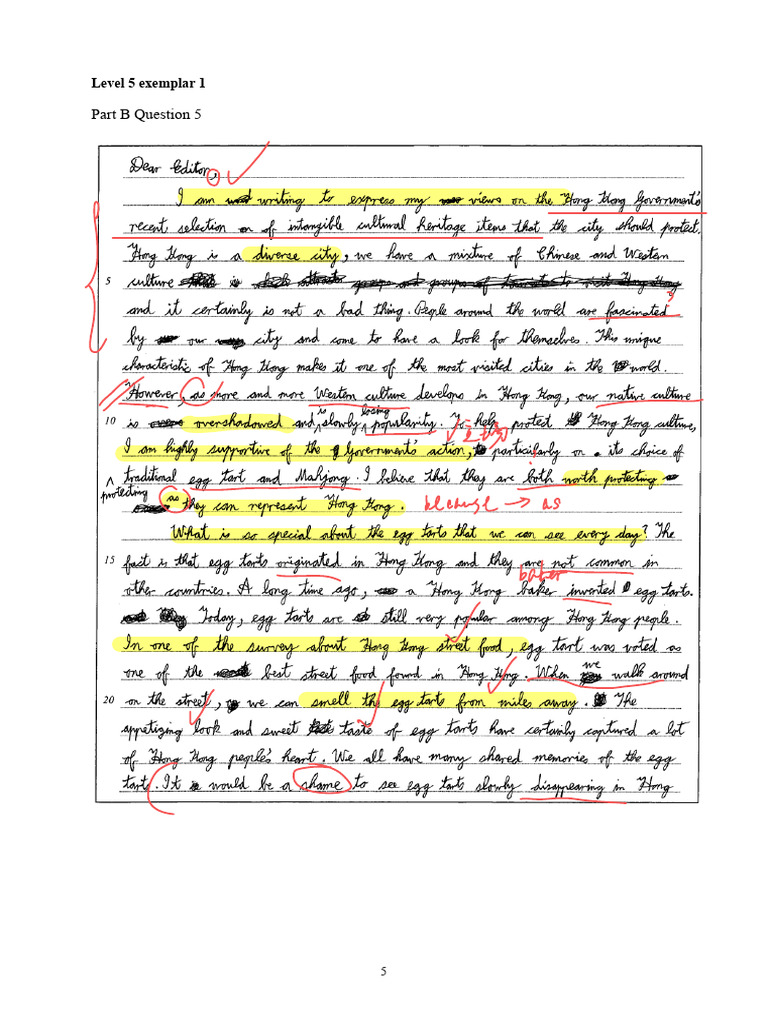 Level 5 exemplar 1
Part B Question 5
Dear Editor,
I am writing to express my views on the Hong Kong Government's
recent selection of intangible cultural heritage items that the city should protect.
Hong Kong is a diverse city, we have a mixture of Chinese and Western
5 culture
and it certainly is not a bad thing. People around the world are fascinated
by our city and come to have a look for themselves. This unique
characteristic of Hong Kong makes it one of the most visited cities in the world.
However, as more and more Western culture develops in Hong Kong, our native culture
10 is overshadowed and is slowly losing popularity. To help protect Hong Kong culture,
I am highly supportive of the government's action, particularly on its choice of
traditional egg tart and Mahjong. I believe that they are both worth protecting
protecting as they can represent Hong Kong. because → as
What is so special about the egg tarts that we can see every day? The
15 fact is that egg tarts originated in Hong Kong and they are not common in
baker
other countries. A long time ago, a Hong Kong baker invented egg tarts.
Today, egg tarts are still very popular among Hong Kong people.
In one of the survey about Hong Kong street food, egg tart was voted as
one of the best street food found in Hong Kong. When we walk around
20 on the street, we can smell the egg tarts from miles away. The
appetizing look and sweet taste of egg tarts have certainly captured a lot
of Hong Kong people's heart. We all have many shared memories of the egg
tart. It would be a shame to see egg tarts slowly disappearing in Hong
5